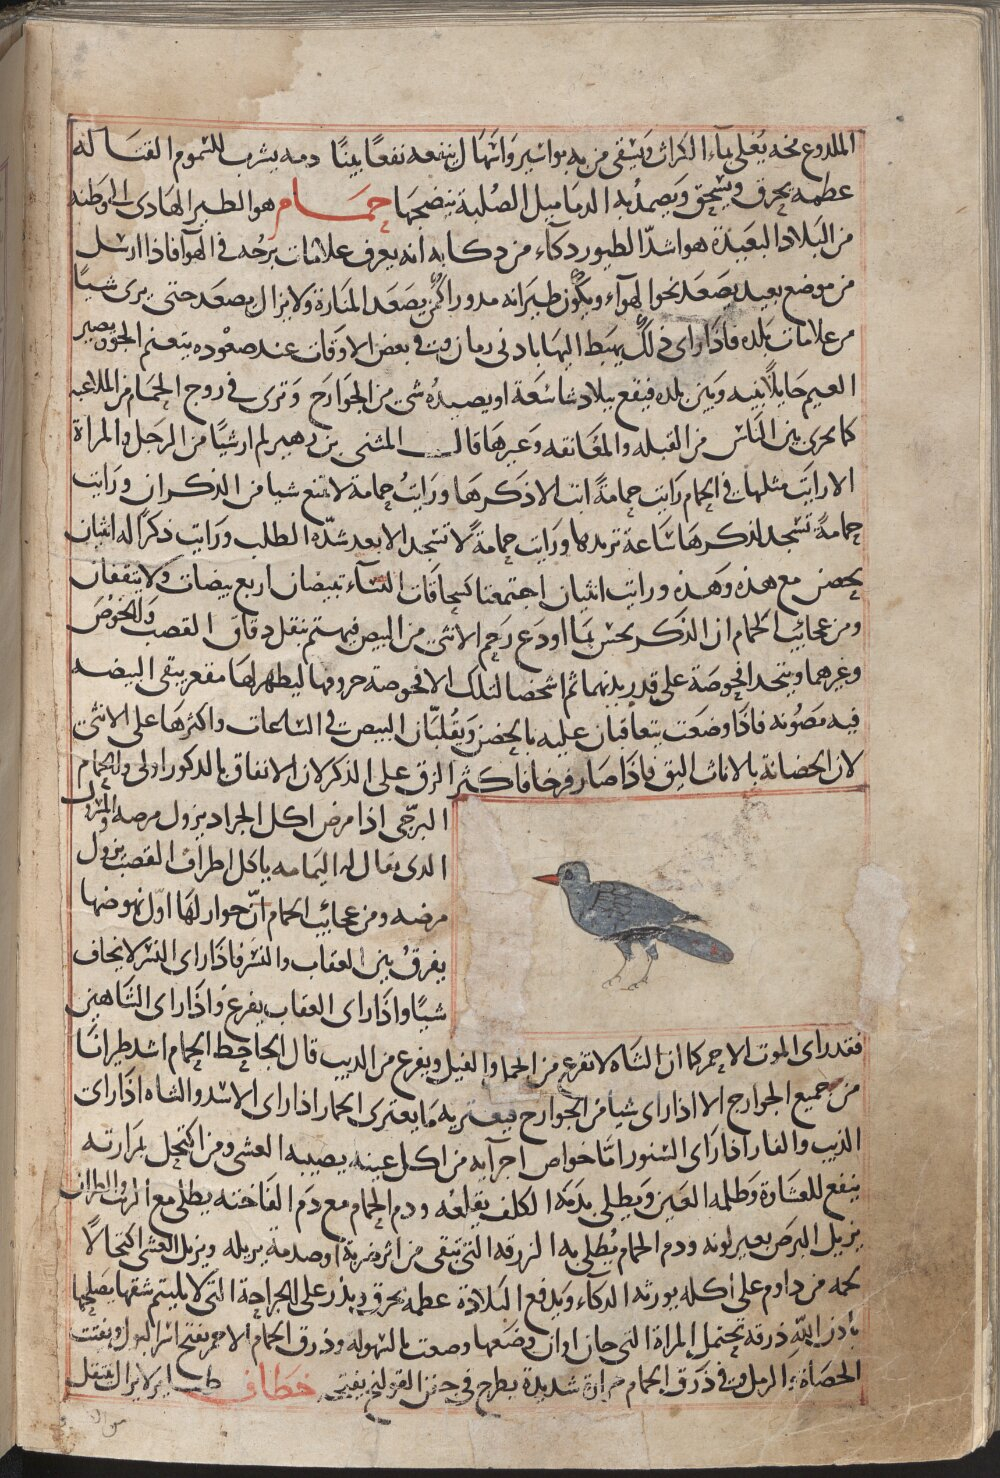 الملدوع مخه يغلي بماء الكراث ويسقى من به بواسير واسهال ينفعه نفعا بينا دمه يشرب للسموم القتالة
عظمه يحرق ويسحق ويضمد به الدماميل الصلبة ينضجها حمام هو الطير الهادي الى وطنه
من البلاد البعيدة هو اشد الطيور ذكاء من ذكايه انه يعرف علامات برجه في الهوآ فاذا ارسل
من موضع بعيد يصعد نحو الهوآء ويكون طيرانه مدورا كمن يصعد المنارة ولا يزال يصعد حتى يرى شيا
من علامات بلده فاذا راى ذلك يهبط اليها بادنى زمان وفي بعض الاوقات عند صعوده يتغيم الجو ويصير
الغيم حايلا بينه وبين بلده فيقع ببلاد شاسعة او يصيده شي من الجوارح وترى في زوج الحمام من الملاعبه
كما يجرى بين الناس من القبله والمعانقه وغيرها قال المثنى بن زهير لم ار شيا من الرجل والمراة
الا رايت مثلها في الحمام رايت حمامة ابت الا ذكرها ورايت حمامة لا تمنع شيا من الذكران ورايت
حمامة تسجد لذكرها ساعة تريدها ورايت حمامة لا تسجد الا بعد شدة الطلب ورايت ذكرا له انثيان
يحضن مع هذه وهذه ورايت انثيان اجتمعتا كسحاقات النسآء تبيضان اربع بيضات ولا ينقفان
ومن عجايب الحمام ان الذكر يحس بما اودع رحم الانثى من البيض فيهتم بنقل دقاق القصب والخوص
وغيرهما ويتخذ افحوصة على قدر بدنهما ثم اشخصا لتلك الافحوصة حروفها ليظهر لها مقعر يبقى البيضه
فيه مصونه فاذا وضعت يتعاقبان عليه بالحضن ويقلبان البيض في الساعات واكثرها على الانثى
لان الحضانة بالاناث اليق فاذا صار فرخا فاكثر الزق على الذكر لان الانفاق بالذكور اولى والحمام
البرجي اذا مرض اكل الجراد يزول مرضه والمنزلي
الذي يقال له اليمامه ياكل اطراف القصب يزول
مرضه ومن عجايب الحمام ان جوازلها اول نهوضها
يفرق بين العقاب والنسر فاذا راى النسر لا يخاف
شيا واذا راى العقاب يفزع واذا راى الشاهين
فقد راى الموت الاحمر كما ان الشاة لا تفزع من الجمل والفيل ويفزع من الذيب قال الجاحظ الحمام اشد طيرانا
من جميع الجوارح الا اذا راى شيا من الجوارح فيعتريه ما يعترى الحمار اذا راى الاسد والشاه اذا رات
الذيب والفار اذا راى السنور اما خواص اجزآيه من اكل عينه يصيبه العشى ومن اكتحل بمرارته
ينفع للغشاوة وظلمه العين ويطلى بدمه الكلف يقلعه ودم الحمام مع دم الفاخته يطلى مع الزيت والقطران
يزيل البرص بغير لونه ودم الحمام يطلى به الزرقه التي تبقى من اثر ضربة او صدمة يزيله ويزيل العشى اكتحالا
لحمه من داوم على اكله يورثه الذكاء ويدفع البلادة عظمه يحرق ويذر على الجراحة التي لا يلتيم شقها يصلحها
باذن الله ذرقه تحتمل المراة التي حان اوان وضعها وضعت بالسهولة وذرق الحمام الاحمر يفتح اسر البول ويفتت
الحصاة والرمل وفي ذرق الحمام حرارة شديدة يطرح في حقن القولنج يفتح خطاف طاير لا يزال ينتقل